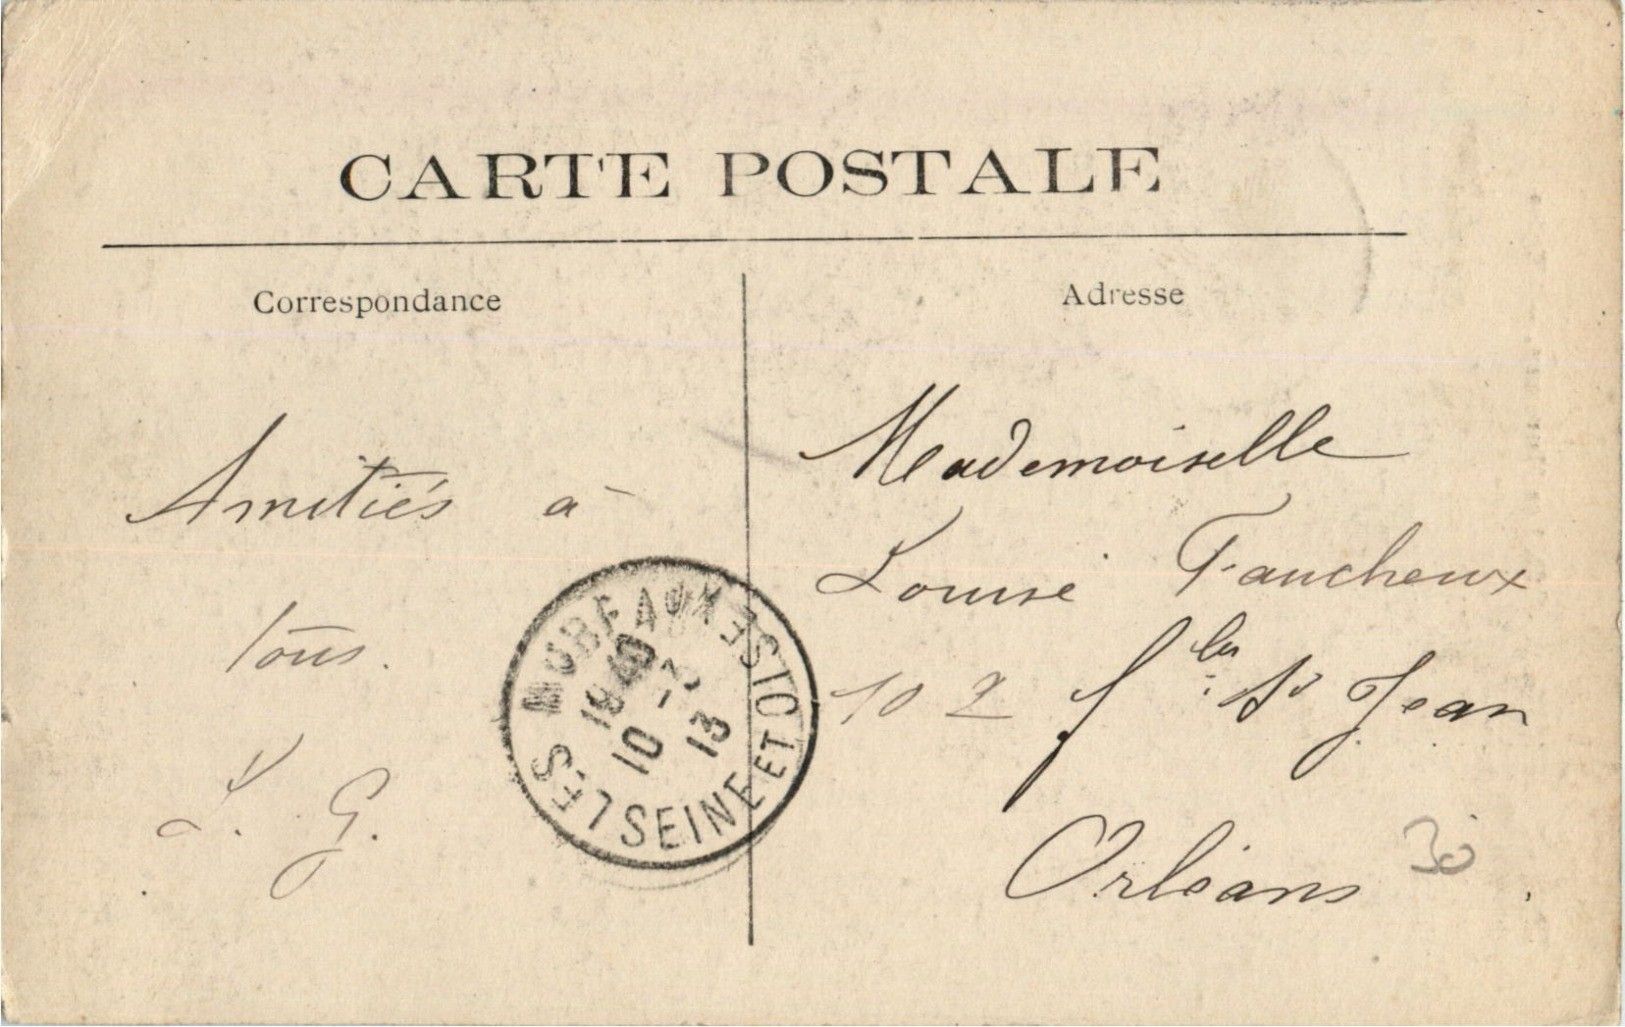 CARTE POSTALE
Correspondance
Adresse
Amitiés à
tous.
L. G.
Mademoiselle
Louise Faucheux
102 fbg St Jean
Orléans
30
LES MUREAUX
SEINE ET OISE
18 40
10 - 3
13